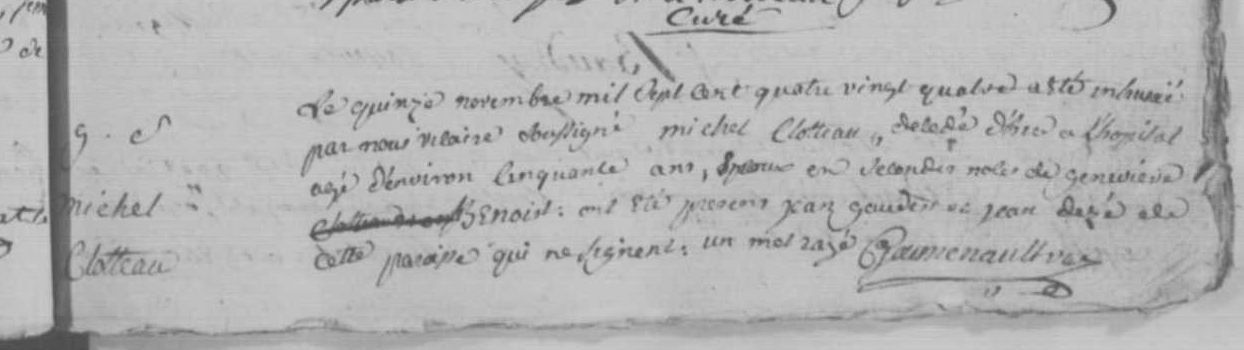 Curé
Le quinze novembre mil sept cent quatre vingt quatre a esté inhumé
par nous vicaire soussigné michel Clotteau, décédé d'hier a l'hopital
agé d'environ cinquante ans, Epoux en secondes noces de geneviève
Benoist: ont été presens jean gaudin et jean dezé de
cette paroisse qui ne signent: un mot razé
g. S
michel
Clotteau